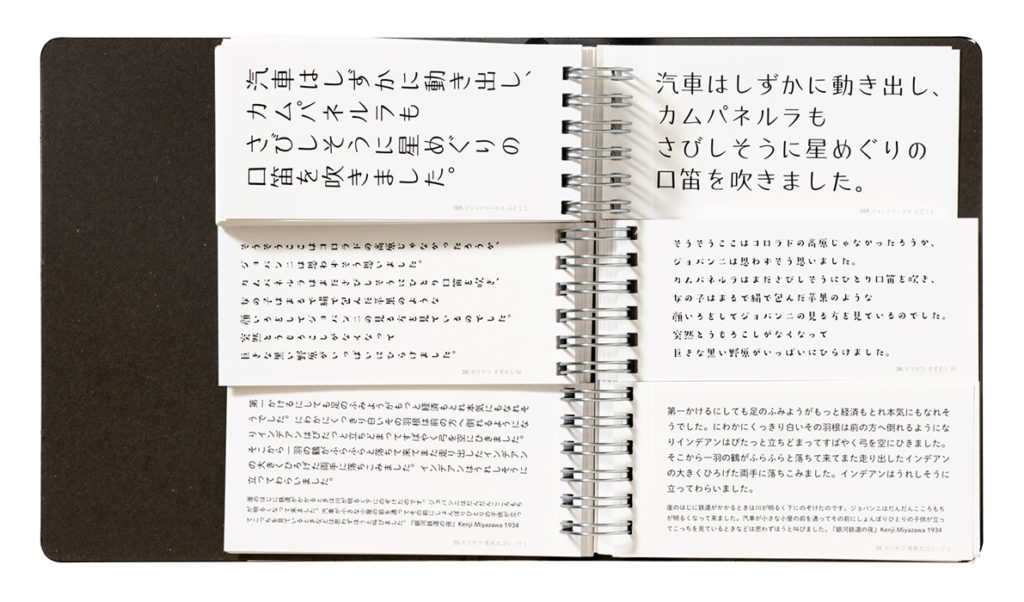 汽車はしずかに動き出し、
カムパネルラも
さびしそうに星めぐりの
口笛を吹きました。
109. フォントワークス ぶどう L
そうそうここはコロラドの高原じゃなかったろうか、
ジョバンニは思わずそう思いました。
カムパネルラはまださびしそうにひとり口笛を吹き、
女の子はまるで絹で包んだ苹果のような
顔いろをしてジョバンニの見る方を見ているのでした。
突然とうもろこしがなくなって
巨きな黒い野原がいっぱいにひらけました。
38. モリサワ すずむし M
第一かけるにしても足のふみようがもっと経済もとれ本気にもなれそ
うでした。にわかにくっきり白いその羽根は前の方へ倒れるようにな
りインデアンはぴたっと立ちどまってすばやく弓を空にひきました。
そこから一羽の鶴がふらふらと落ちて来てまた走り出したインデアン
の大きくひろげた両手に落ちこみました。インデアンはうれしそうに
立ってわらいました。
崖のはじに鉄道がかかるときは川が明るく下にのぞけたのです。ジョバンニはだんだんこころもち
が明るくなって来ました。汽車が小さな小屋の前を通ってその前にしょんぼりひとりの子供が立っ
てこっちを見ているときなどは思わずほうと叫びました。『銀河鉄道の夜』Kenji Miyazawa 1934
25. モリサワ
汽車はしずかに動き出し、
カムパネルラも
さびしそうに星めぐりの
口笛を吹きました。
109. フォントワークス ぶどう L
そうそうここはコロラドの高原じゃなかったろうか、
ジョバンニは思わずそう思いました。
カムパネルラはまださびしそうにひとり口笛を吹き、
女の子はまるで絹で包んだ苹果のような
顔いろをしてジョバンニの見る方を見ているのでした。
突然とうもろこしがなくなって
巨きな黒い野原がいっぱいにひらけました。
38. モリサワ すずむし M
第一かけるにしても足のふみようがもっと経済もとれ本気にもなれそ
うでした。にわかにくっきり白いその羽根は前の方へ倒れるようにな
りインデアンはぴたっと立ちどまってすばやく弓を空にひきました。
そこから一羽の鶴がふらふらと落ちて来てまた走り出したインデアン
の大きくひろげた両手に落ちこみました。インデアンはうれしそうに
立ってわらいました。
崖のはじに鉄道がかかるときは川が明るく下にのぞけたのです。ジョバンニはだんだんこころもち
が明るくなって来ました。汽車が小さな小屋の前を通ってその前にしょんぼりひとりの子供が立っ
てこっちを見ているときなどは思わずほうと叫びました。『銀河鉄道の夜』Kenji Miyazawa 1934
25. モリサワ